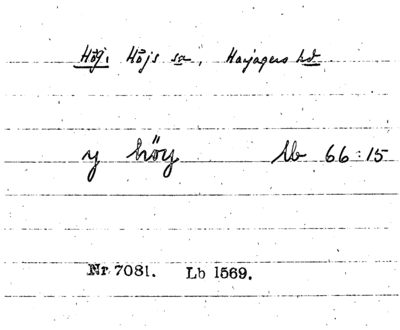 Hög, Höjs sn, Harjagers hd
y höy lb 66:15
Nr 7081. Lb 1569.